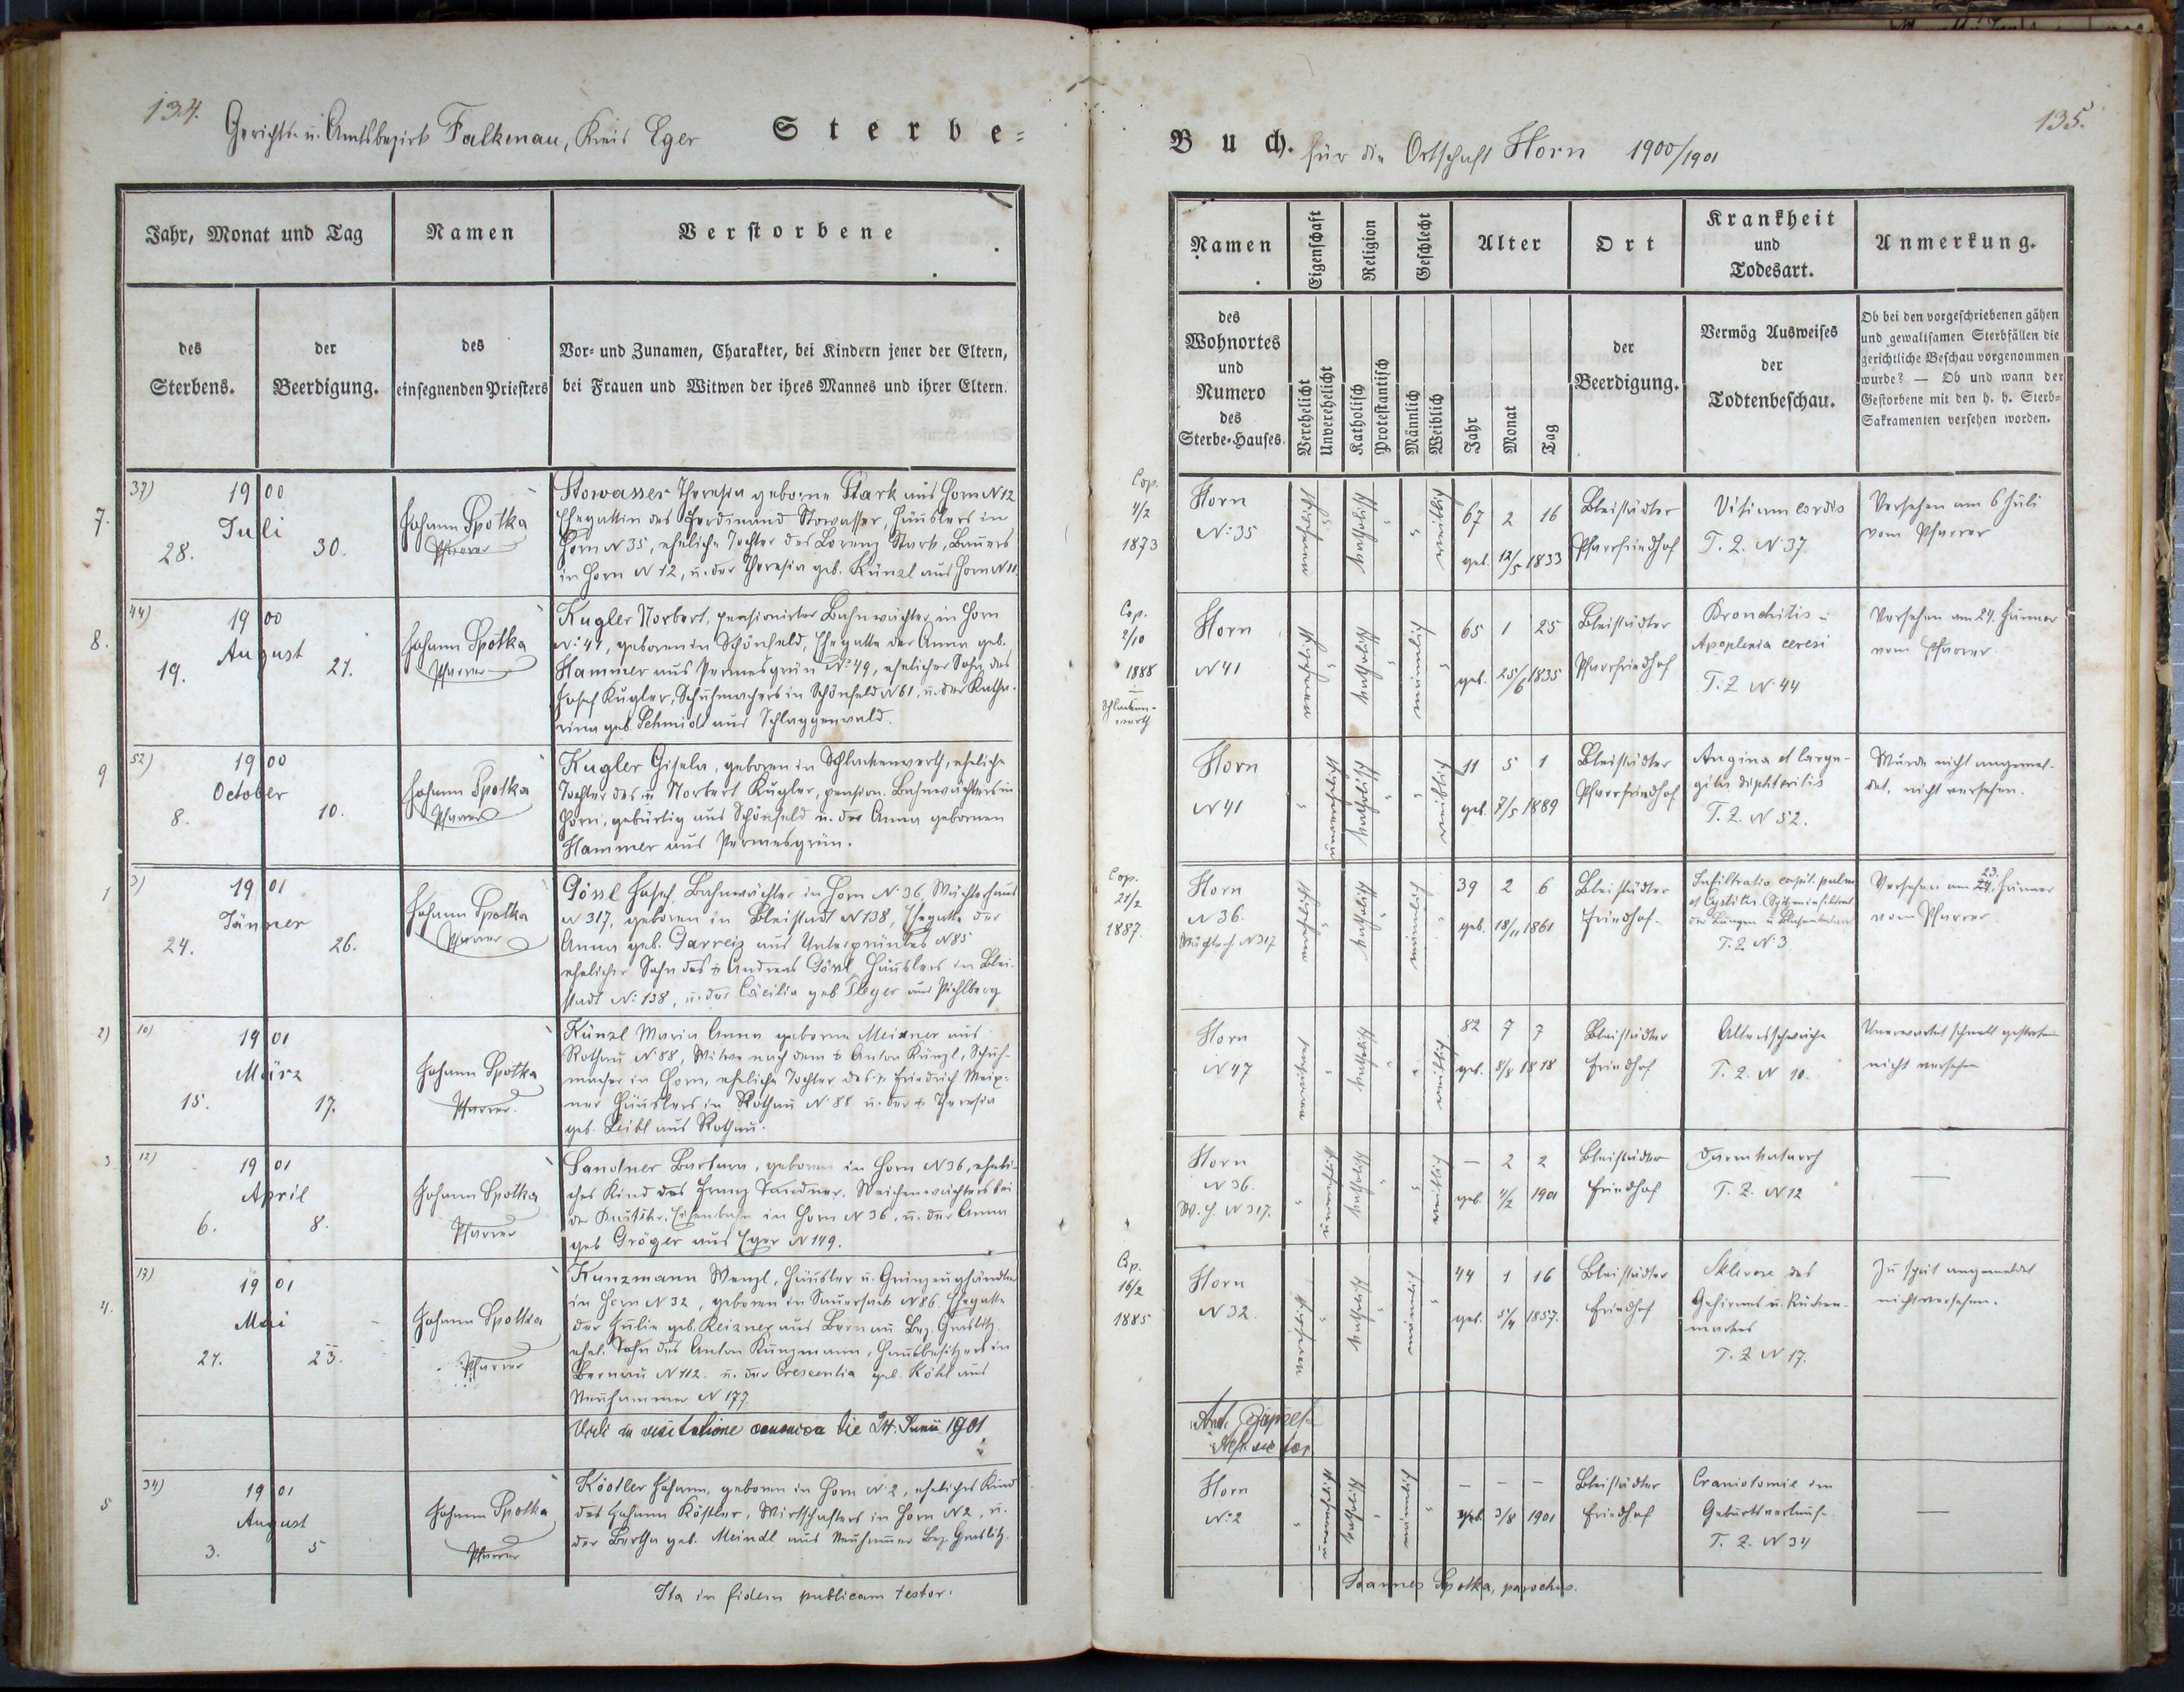 134.
Gerichts- u. Amtsbezirk Falkenau, Kreis Eger
Sterbe-
Jahr, Monat und Tag
Namen
Verstorbene
des
Sterbens.
der
Beerdigung.
des
einsegnenden Priesters
Vor- und Zunamen, Charakter, bei Kindern jener der Eltern,
bei Frauen und Witwen der ihres Mannes und ihrer Eltern.
7.
37)
1900
Juli
28.
30.
Johann Spotka
Pfarrer
Stowasser Theresia geborne Stark aus Horn N 12
Ehegattin des Ferdinand Stowasser, Häuslers in
Horn N 35, eheliche Tochter des Lorenz Stark, Bauers
in Horn N 12, u. der Theresia geb. Künzl aus Horn N 11.
8.
44)
1900
August
19.
21.
Johann Spotka
Pfarrer
Kugler Norbert, pensionirter Bahnwächter in Horn
N: 41, geboren in Schönfeld, Ehegatte der Anna geb.
Hammer aus Permesgrün No 49, ehelicher Sohn des
Josef Kugler, Schuhmachers in Schönfeld N 61, u. der Katha-
rina geb. Schmidt aus Schlaggenwald.
9
52)
1900
October
8.
10.
Johann Spotka
Pfarrer
Kugler Gisela, geboren in Schlackenwerth, eheliche
Tochter des Norbert Kugler, pension. Bahnwächters in
Horn, gebürtig aus Schönfeld u. der Anna gebornen
Hammer aus Permesgrün.
1
3)
1901
Jänner
24.
26.
Johann Spotka
Pfarrer
Gössl Josef, Bahnwächter in Horn N 36, Wächterhaus
N 317, geboren in Bleistadt N 138, Ehegatte der
Anna geb. Garreiz aus N 85
ehelicher Sohn des + Andreas Gössl, Häuslers in Blei-
stadt N: 138, u. der Cäcilia geb Pleyer aus Pichlberg
2)
10)
1901
März
15.
17.
Johann Spotka
Pfarrer.
Künzl Maria Anna geborne Meixner aus
Rothau N 88, Witwe nach dem + Anton Künzl, Schuh-
macher in Horn, eheliche Tochter des + Friedrich Meix-
ner Häuslers in Rothau N 88 u. der + Theresia
geb. Leibl aus Rothau.
3
12)
1901
April
6.
8.
Johann Spotka
Pfarrer
Sandner Barbara, geboren in Horn N 36, eheli-
ches Kind des Franz Sandner, Weichenwächters bei
Eisenbahn in Horn N 36, u. der Anna
geb Gröger aus Eger N 149.
4.
17)
1901
Mai
21.
23.
Johann Spotka
Pfarrer
Kunzmann Wenzl, Häusler u. Grünzeughändler
in Horn N 32, geboren in Sauersack N 86. Ehegatte
der Julie geb. Reizner aus Bernau Bez. Graslitz.
ehel. Sohn des Anton Kunzmann, Hausbesitzers in
Bernau N 112. u. der Crescentia geb. Köhl aus
Neuhammer N 177
Vidi in visitatione canonica die 24. Junii 1901
5
34)
1901
August
3.
5
Johann Spotka
Pfarrer
Köstler Johann, geboren in Horn N 2, eheliches Kind
des Johann Köstler, Wirtschafters in Horn N 2, u.
der Bertha geb. Meindl aus Neuhammer Bez. Graslitz.
Ita in fidem publicam testor.
135.
Buch.
für die Ortschaft Horn 1900/1901
Namen
Eigenschaft
Religion
Geschlecht
Alter
Ort
Krankheit
und
Todesart.
Anmerkung.
des
Wohnortes
und
Numero
des
Sterbe-Hauses.
Verehelicht
Unverehelicht
Katholisch
Protestantisch
Männlich
Weiblich
Jahr
Monat
Tag
der
Beerdigung.
Vermög Ausweises
der
Todtenbeschau.
Ob bei den vorgeschriebenen gähen
und gewaltsamen Sterbfällen die
gerichtliche Beschau vorgenommen
wurde? — Ob und wann der
Gestorbene mit den h. h. Sterb-
Sakramenten versehen worden.
Cop.
4/2
1873
Horn
N: 35
verehelicht
katholisch
"
"
weiblich
67 2 16
geb. 12/5 1833
Bleistädter
Pfarrfriedhof
Vitium cordis
T. Z. N: 37.
Versehen am 6 Juli
vom Pfarrer
Cop.
2/10
1888
in
Schlacken-
werth
Horn
N 41
verehelicht
"
katholisch
"
männlich
"
65 1 25
geb. 25/6 1835
Bleistädter
Pfarrfriedhof
Bronchitis u
Apoplexia cerebri
T. Z N: 44
Versehen am 24. Jänner
vom Pfarrer.
Horn
N 41
"
unverehelicht
katholisch
"
"
weiblich
11 5 1
geb. 7/5 1889
Bleistädter
Pfarrfriedhof
Angina et laryn-
gitis diphteritis
T. Z. N 52.
Wurde nicht angemel-
det, nicht versehen.
Cop.
21/2
1887.
Horn
N 36.
Wächterh. N 317
verehelicht
"
katholisch
"
männlich
"
39 2 6
geb. 18/11 1861
Bleistädter
Friedhof.
Infiltratio capit. pulm
et Cystitis. (Spitzeninfiltrat
der Lungen u Blasenkatarrh
T. Z N: 3
23.
Versehen am 24. Jänner
vom Pfarrer
Horn
N 47
verwitwet
"
katholisch
"
"
weiblich
82 7 7
geb. 8/8 1818
Bleistädter
Friedhof
Altersschwäche
T. Z. N 10.
Unerwartet schnell gestorben
nicht versehen
Horn
N 36.
W. h. N 317.
"
unverehelicht
katholisch
"
"
weiblich
— 2 2
geb. 4/2 1901
Bleistädter
Friedhof
Darmkatarrh
T. Z. N 12
—
Cop.
16/2
1885
Horn
N 32.
verehelicht
"
katholisch
"
männlich
"
44 1 16
geb. 5/4 1857.
Bleistädter
Friedhof
Sklerose des
Gehirnes u. Rücken-
markes
T. Z N 17.
Zu spät angemeldet
nicht versehen.
Horn
N: 2
"
unverehelicht
katholisch
"
männlich
"
— — —
geb. 3/8 1901
Bleistädter
Friedhof
Craniotomie im
Geburtsverlauf.
T. Z. N 34
—
Joannes Spotka, parochus.